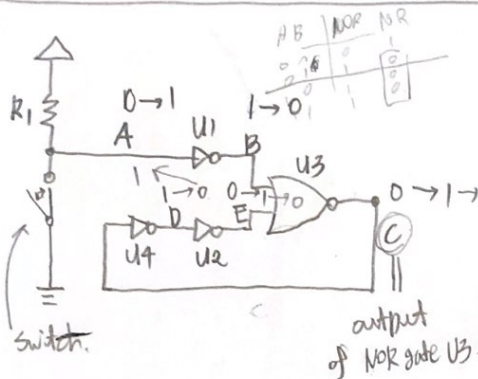 A B NOR
0 → 1
1 → 0
R1
A
U1
B
U3
1
1 → 0
0 → 1 → 0
0 → 1 →
D
E
C
U4
U2
C
switch.
output
of NOR gate U3.